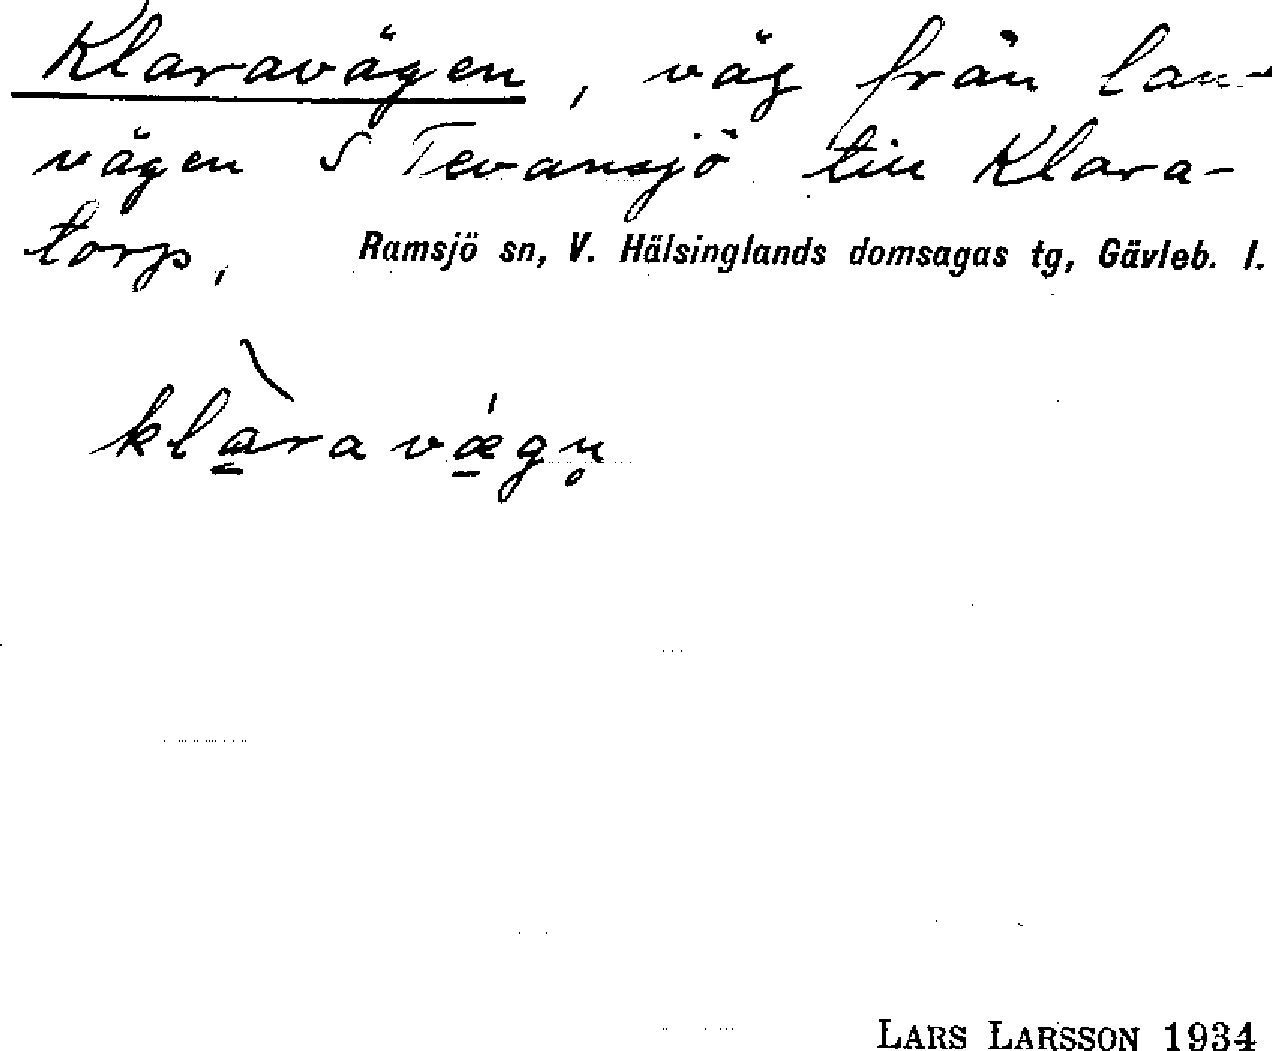 Klaravägen, väg från lan-
vägen S Tevansjö till Klara-
torp,
Ramsjö sn, V. Hälsinglands domsagas tg, Gävleb. l.
klàravǽgn̥
LARS LARSSON 1934